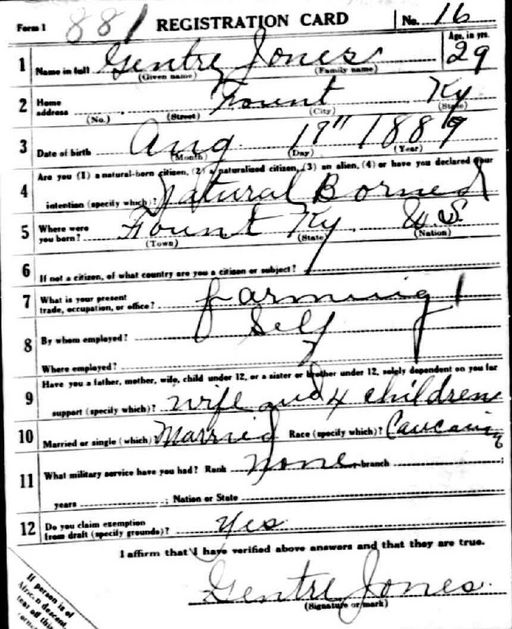 Form 1 881 REGISTRATION CARD No. 16
1 Name in full Gentre Jones Age, in yrs. 29
(Given name) (Family name)
2 Home address Fount Ky
(No.) (Street) (City) (State)
3 Date of birth Aug 19" 1889
(Month) (Day) (Year)
4 Are you (1) a natural-born citizen, (2) a naturalized citizen, (3) an alien, (4) or have you declared your
intention (specify which)? Natural Borned
5 Where were you born? Fount Ky U.S.
(Town) (State) (Nation)
6 If not a citizen, of what country are you a citizen or subject?
7 What is your present trade, occupation, or office? farming
8 By whom employed? Self
Where employed?
9 Have you a father, mother, wife, child under 12, or a sister or brother under 12, solely dependent on you for
support (specify which)? wife and 4 children
10 Married or single (which) Married Race (specify which)?
11 What military service have you had? Rank none branch
years ; Nation or State
12 Do you claim exemption from draft (specify grounds)? Yes
I affirm that I have verified above answers and that they are true.
Gentre Jones.
(Signature or mark)
If person is of
African descent,